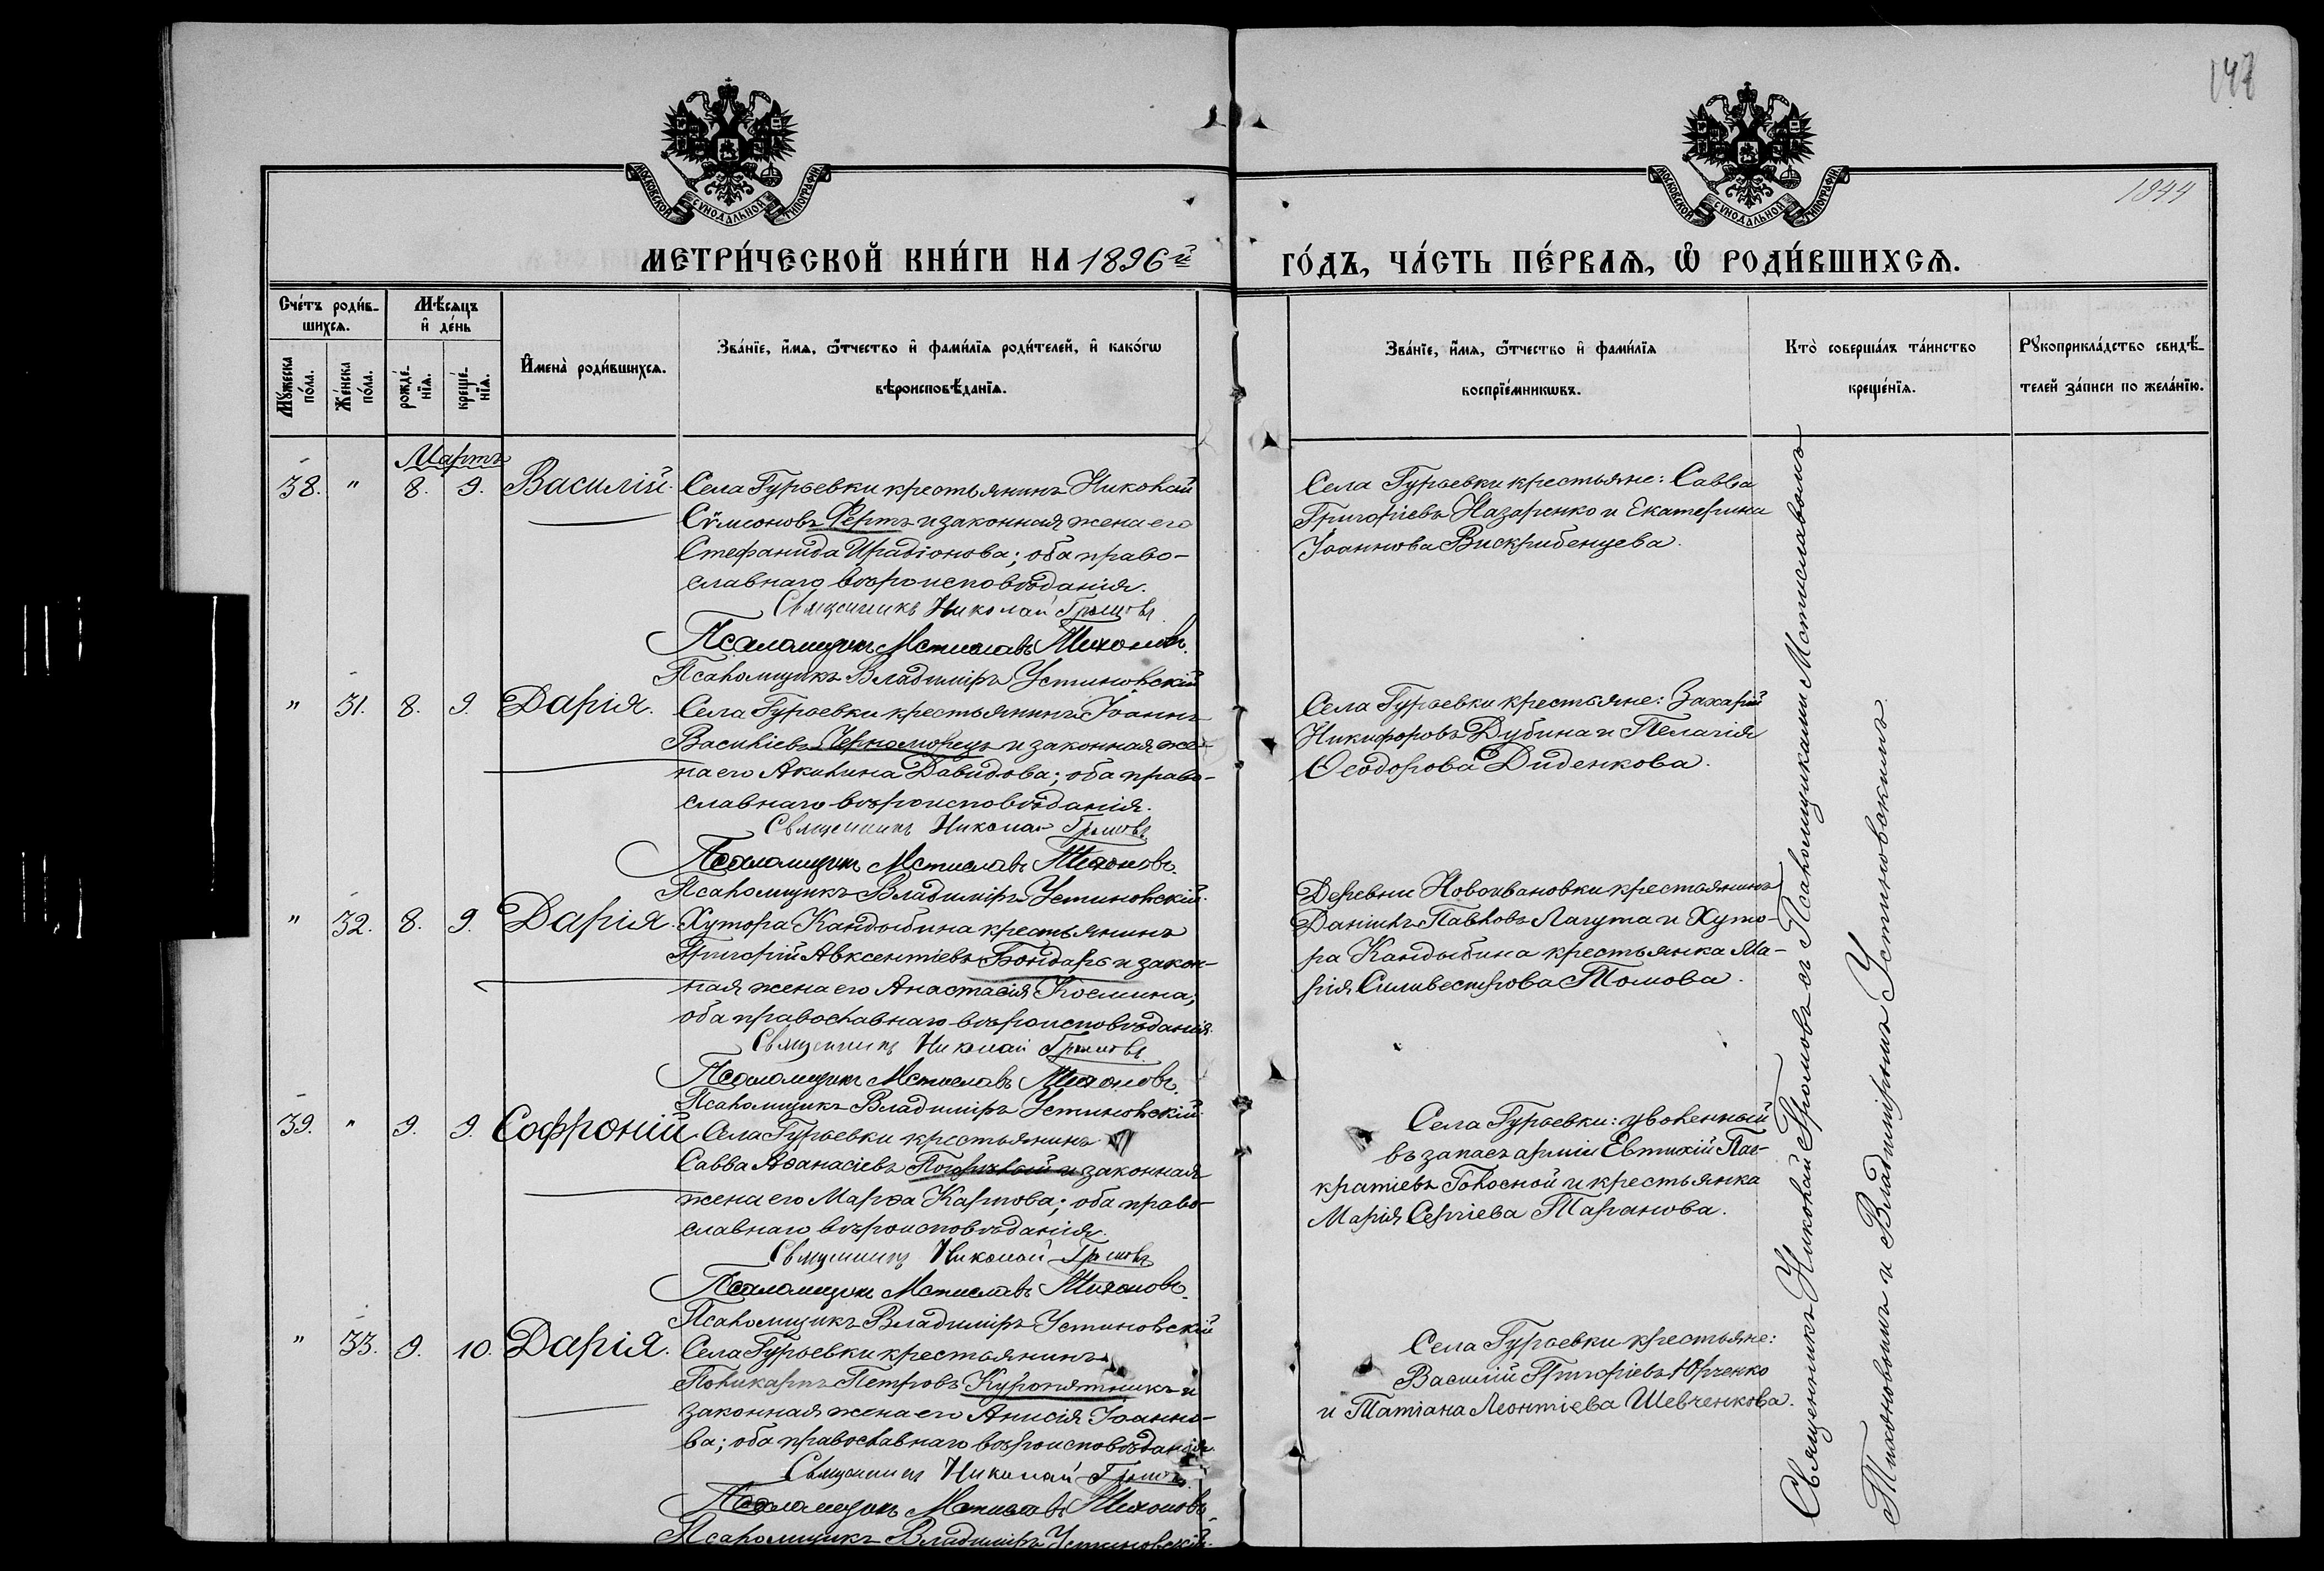 147
1944
МОСКОВСКОЙ СѴНОДАЛЬНОЙ ТИПОГРАФІИ
МОСКОВСКОЙ СѴНОДАЛЬНОЙ ТИПОГРАФІИ
МЕТРИ́ЧЕСКОЙ КНИ́ГИ НА 1896й
ГО́ДЪ, ЧА́СТЬ ПЕ́РВАѦ, Ѡ РОДИ́ВШИХСѦ.
Сче́тъ роди́в-
шихсѧ.
Мꙋ́жеска по́ла.
Же́нска по́ла.
Мѣ́сѧцъ
и҆ де́нь
рожде́-
нїѧ.
креще́-
нїѧ.
И҆мена̀ роди́вшихсѧ.
Зва́нїе, и҆́мѧ, ѻ҆́тчество и҆ фами́лїѧ роди́телей, и҆ како́гѡ
вѣроисповѣ́данїѧ.
Зва́нїе, и҆́мѧ, ѻ҆́тчество и҆ фами́лїѧ
воспрїе́мникѡвъ.
Кто̀ соверша́лъ та́инство
креще́нїѧ.
Рꙋкоприкла́дство свидѣ́-
телей за́писи по жела́нїю.
Мартъ
38. " 8. 9. Василій.
Села Гурьевки крестьянинъ Николай
Сѵмеоновъ Фертъ и законная жена его
Стефанида Ирадіонова; оба право-
славнаго вѣроисповѣданія.
Священникъ Николай Громовъ
Псаломщикъ Мстиславъ Тихоновъ.
Псаломщикъ Владиміръ Устиновскій
Села Гурьевки крестьяне: Савва
Григоріевъ Назаренко и Екатерина
Іоаннова Вискрибенцева.
" 31. 8. 9. Дарія.
Села Гурьевки крестьянинъ Іоаннъ
Василіевъ Черноморецъ и законная же-
на его Акилина Давидова; оба право-
славнаго вѣроисповѣданія.
Священникъ Николай Громовъ
Псаломщикъ Мстиславъ Тихоновъ.
Псаломщикъ Владиміръ Устиновскій.
Села Гурьевки крестьяне: Захарій
Никифоровъ Дубина и Пелагія
Ѳеодорова Диденкова.
" 32. 8. 9. Дарія.
Хутора Кандыбина крестьянинъ
Григорій Авксентіевъ Бондарь и закон-
ная жена его Анастасія Космина;
оба православнаго вѣроисповѣданія.
Священникъ Николай Громовъ
Псаломщикъ Мстиславъ Тихоновъ.
Псаломщикъ Владиміръ Устиновскій
Деревни Новоивановки крестьянинъ
Даніилъ Павловъ Лагута и Хуто-
ра Кандыбина крестьянка Ма-
рія Сильвестрова Томова.
39. " 9. 9. Софроній.
Села Гурьевки крестьянинъ
Савва Аѳанасіевъ и законная
жена его Марѳа Карпова; оба право-
славнаго вѣроисповѣданія.
Священникъ Николай Громовъ
Псаломщикъ Мстиславъ Тихоновъ.
Псаломщикъ Владиміръ Устиновскій
Села Гурьевки: уволенный
въ запасъ арміи Евтихій Пан-
кратіевъ Голосной и крестьянка
Марія Сергіева Таранова.
" 33. 9. 10. Дарія.
Села Гурьевки крестьянинъ
Поликарпъ Петровъ Куропятникъ и
законная жена его Анисія Іоанно-
ва; оба православнаго вѣроисповѣданія.
Священникъ Николай Громовъ
Псаломщикъ Мстиславъ Тихоновъ.
Псаломщикъ Владиміръ Устиновскій.
Села Гурьевки крестьяне:
Василій Григоріевъ Юрченко
и Татіана Леонтіева Шевченкова.
Священникъ Николай Громовъ съ Псаломщиками Мстиславомъ
Тихоновымъ и Владиміромъ Устиновскимъ.